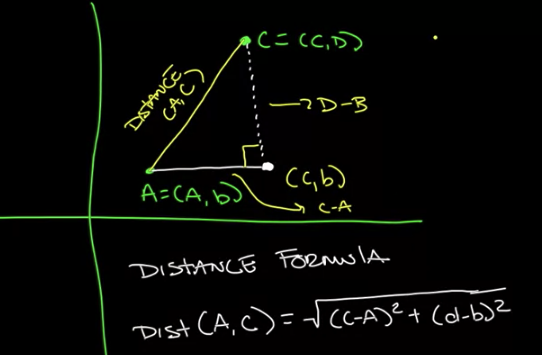 C = (C,D)
DISTANCE
(A,C)
D-B
(C,b)
A=(A,b)
C-A
DISTANCE FORMULA
DIST (A,C) = √(C-A)² + (d-b)²